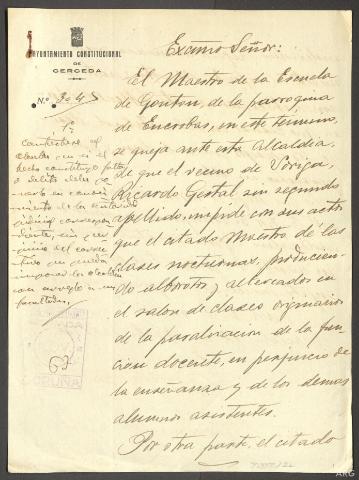 AYUNTAMIENTO CONSTITUCIONAL
DE
CERCEDA
N.º
Excmo Señor:
El Maestro de la Escuela
de Gontón, de la parroquia
de Encrobas, en este término,
se queja ante esta Alcaldía,
de que el vecino de
Ricardo Gestal sin segundo
apellido, impide con sus actos
que el citado Maestro dé las
clases nocturnas, producien-
do alborotos y altercados en
el salon de clases originarios
de la paralización de la fun-
cion docente, en perjuicio de
la enseñanza y de los demas
alumnos asistentes.
Por otra parte, el citado
Contéstese al
Alcalde que si el
hecho constituye falta
o delito debe po-
nerlo en conoci-
miento de la autoridad
judicial correspon-
diente, sin per-
juicio del correc-
tivo que pueda
imponer la Alcaldía
con arreglo a sus
facultades.
CORUÑA
ARG